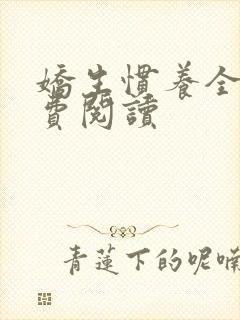 嬌生慣養全
費閱讀
青蓮下的呢喃